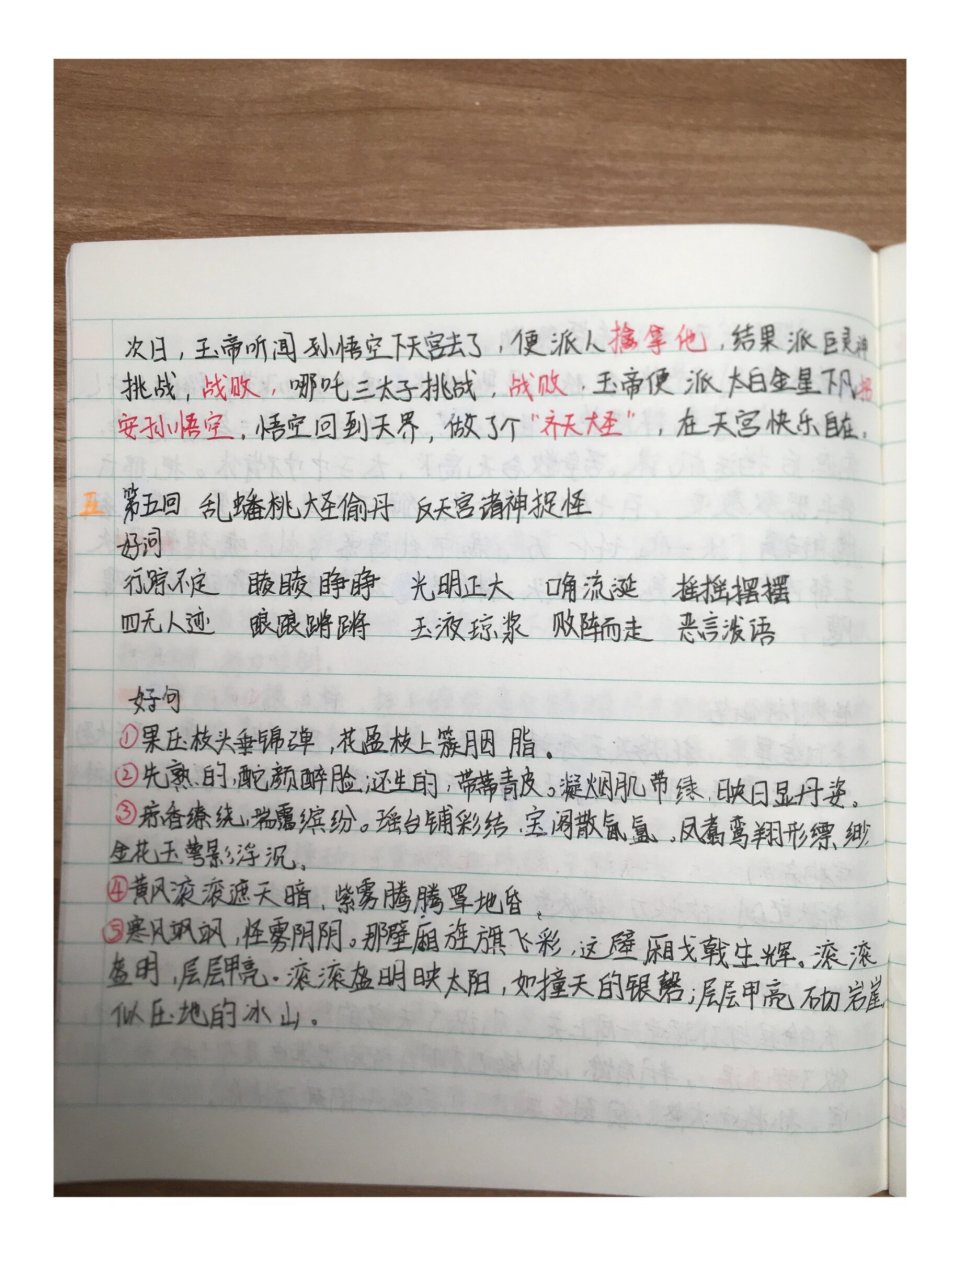 次日，玉帝听闻孙悟空下天宫去了，便派人擒拿他，结果派巨灵神
挑战，战败，哪吒三太子挑战，战败，玉帝便派太白金星下凡招
安孙悟空，悟空回到天界，做了个“齐天大圣”，在天宫快乐自在。
五 第五回 乱蟠桃大圣偷丹 反天宫诸神捉怪
好词
行踪不定 睖睖睁睁 光明正大 口角流涎 摇摇摆摆
四无人迹 踉踉蹡蹡 玉液琼浆 败阵而走 恶言泼语
好句
①果压枝头垂锦弹，花盈枝上簇胭脂。
②先熟的，酡颜醉脸，还生的，带蒂青皮。凝烟肌带绿，映日显丹姿。
③琼香缭绕，瑞霭缤纷。瑶台铺彩结，宝阁散氤氲。凤翥鸾翔形缥缈
金花玉萼影浮沉。
④黄风滚滚遮天暗，紫雾腾腾罩地昏。
⑤寒风飒飒，怪雾阴阴。那壁厢旌旗飞彩，这壁厢戈戟生辉。滚滚
盔明，层层甲亮。滚滚盔明映太阳，如撞天的银磬；层层甲亮砌岩崖
似压地的冰山。